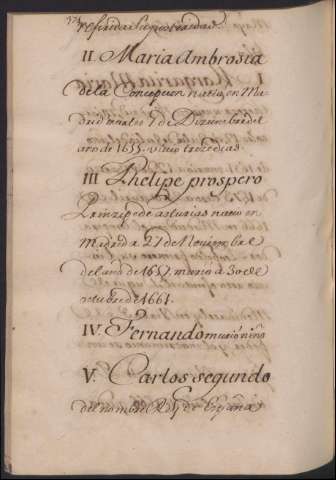 II. Maria Ambrosia
de la Concepcion nacio en Ma
drid martes 7 de Diziembre del
año de 1655. vivio treze dias.
III Phelipe prospero
Principe de asturias nacio en
Madrid a 27 de Noviembre
del año de 1657. murio a 30 de
octubre de 1661.
IV. Fernando murio niño
V. Carlos segundo
del nombre Rey de España